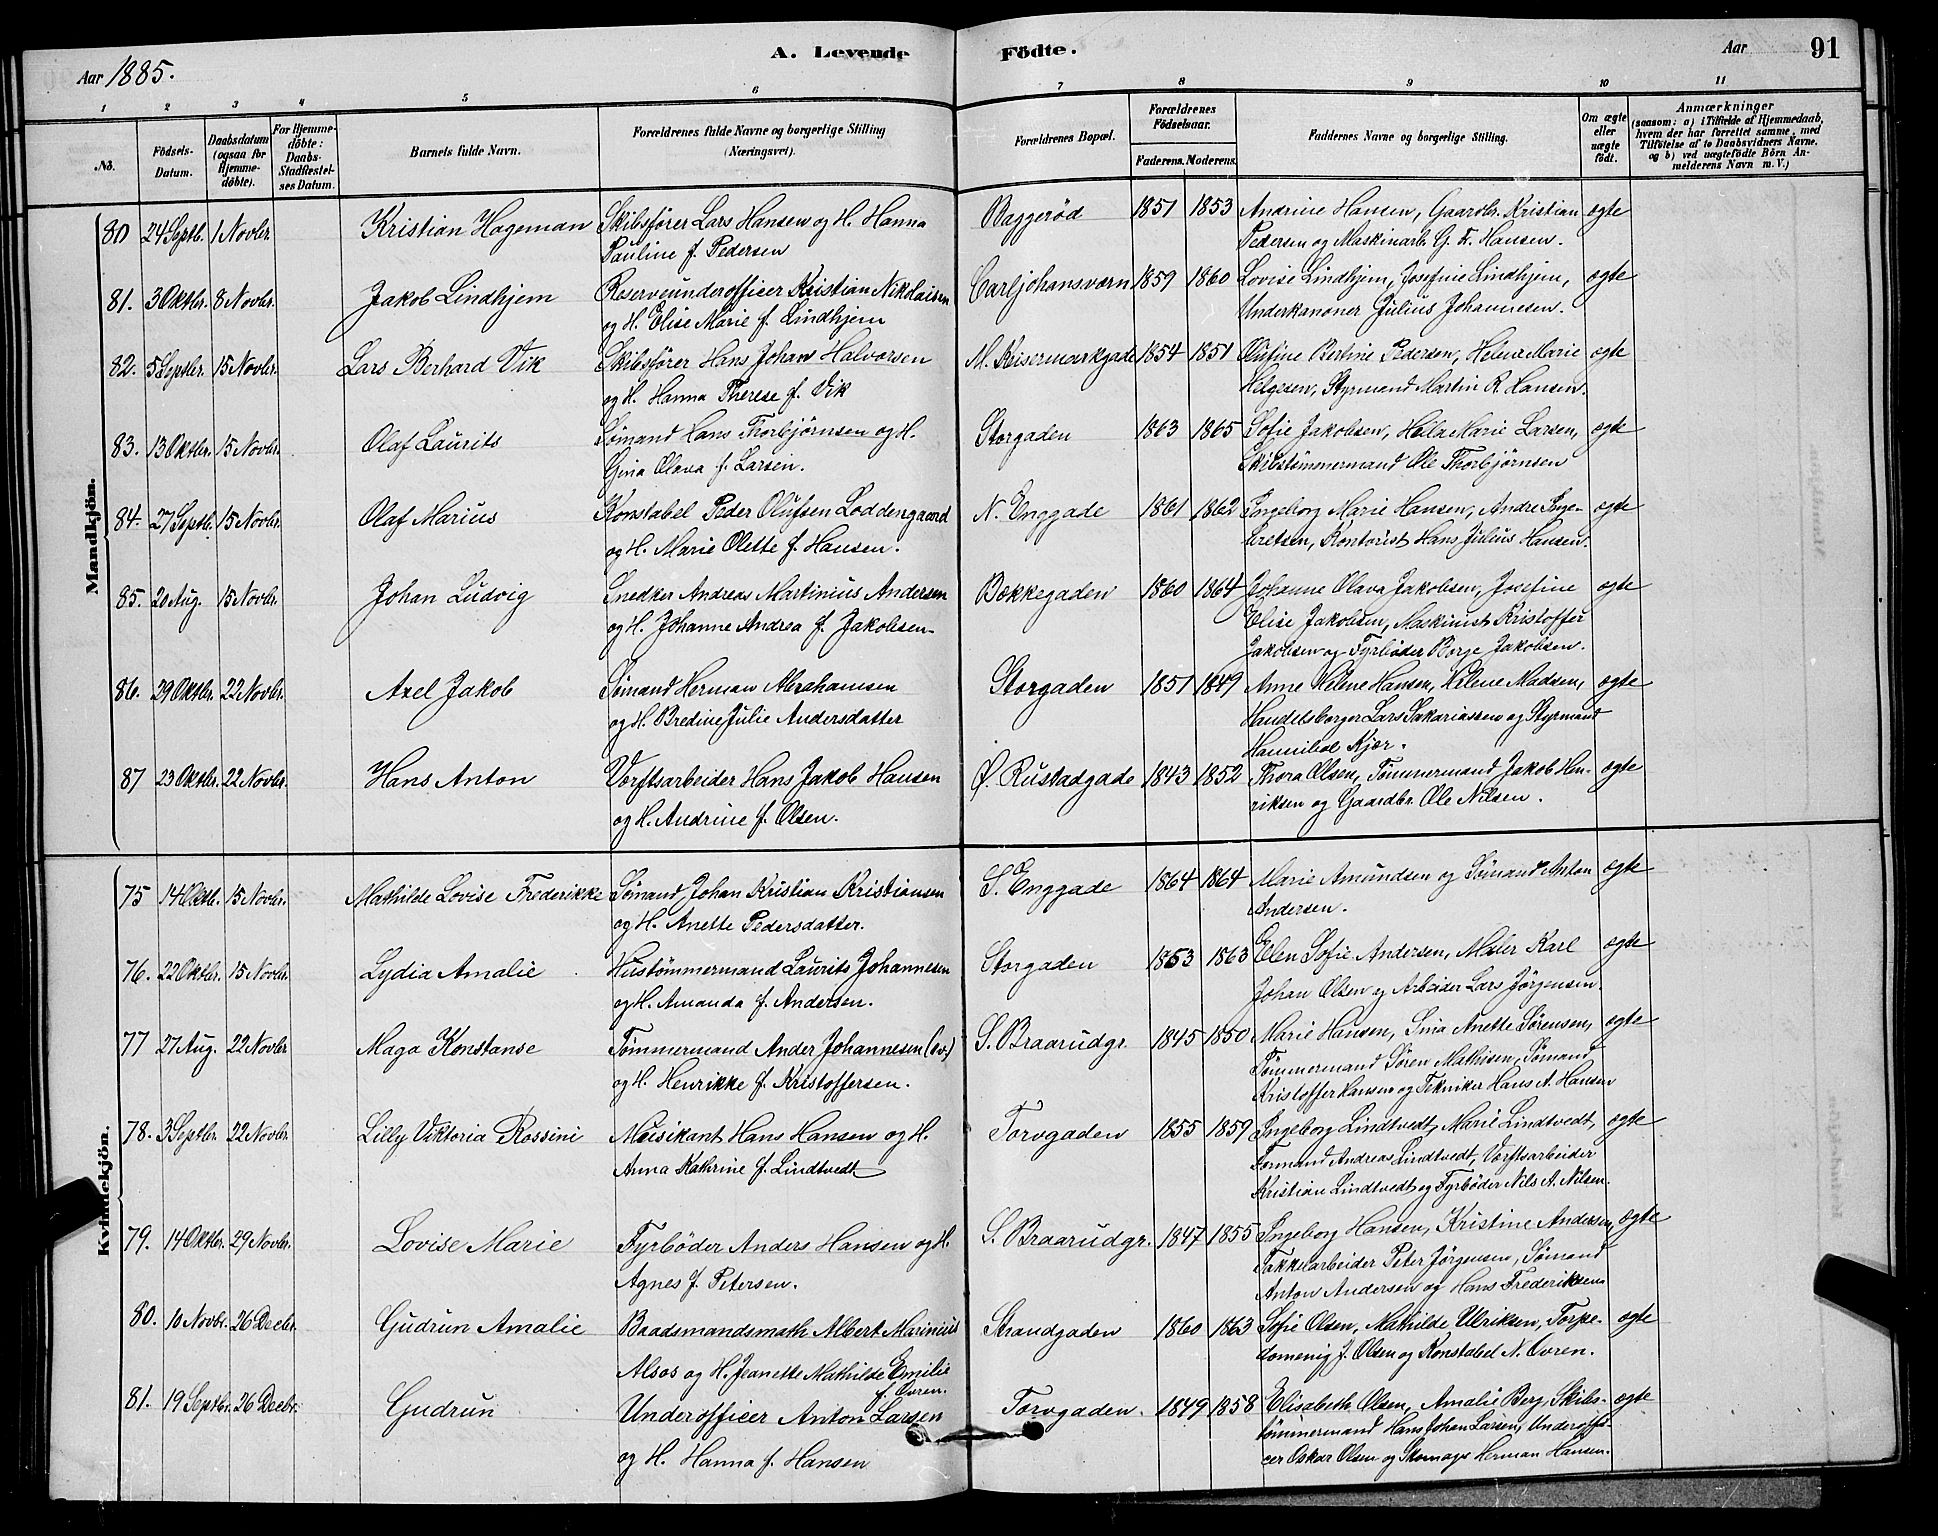 A. Levende Födte.
Aar 1885.
Aar 91
1 2 3 4 5 6 7 8 9 10 11
No.
Födsels-Datum.
Daabsdatum (ogsaa for Hjemme-döbte).
For Hjemme-döbte: Daabs-Stadfæstel-ses Datum.
Barnets fulde Navn.
Forældrenes fulde Navne og borgerlige Stilling (Næringsvei).
Forældrenes Bopæl.
Forældrenes Födselsaar.
Faderens. Moderens.
Faddernes Navne og borgerlige Stilling.
Om ægte eller uægte födt.
Anmærkninger
(saasom: a) i Tilfælde af Hjemmedaab,
hvem der har forrettet samme, med
Tilföielse af to Daabsvidners Navne,
og b) ved uægtefödte Börn An-
melderens Navn m. V.)
Mandkjön.
80 24 Septb. 1 Novbr. Kristian Hageman Skibsfører Lars Hansen og H. Hanna Baggerød 1851 1853 Andrine Hansen, Gaardbr. Kristian ægte
Pauline f. Pedersen Pedersen og Maskinarb. G. F. Hansen.
81. 3 Oktbr. 8 Novbr. Jakob Lindhjem Reserveunderofficer Kristian Nikolaisen Carljohansværn 1859 1860 Lovise Lindhjem, Josefine Lindhjem, ægte
og H. Elise Marie f. Lindhjem Underkanoner Julius Johannesen.
82. 5 Septbr. 15 Novbr. Lars Berhard Vik Skibsfører Hans Johan Halvorsen M. Keisermarkgade 1854 1851 Olufine Bertine Pedersen, Helene Marie ægte
og H. Hanna Therese f. Vik Helgesen, Styrmand Martin R. Hansen.
83. 13 Oktbr. 15 Novbr. Olaf Laurits Sømand Hans Thorbjørnsen og H. Storgaden 1863 1865 Sofie Jakobsen, Hela Marie Larsen, ægte
Gina Olava f. Larsen. Skibstømmermand Ole Thorbjørnsen
84. 27 Septb. 15 Novbr. Olaf Marius Konstabel Peder Olufsen Loddengaard N. Enggade 1861 1862 Ingeborg Marie Hansen, Andre Inge- ægte
og H. Marie Olette f. Hansen. bretsen, Kontorist Hans Julius Hansen.
85. 20 Aug. 15 Novbr. Johan Ludvig Snedker Andreas Martinius Andersen Bækkegaden 1860 1864 Johanne Olava Jakobsen, Josefine ægte
og H. Johanne Andrea f. Jakobsen. Elise Jakobsen, Maskinist Kristoffer
Jakobsen og Fyrbøder Borge Jakobsen.
86. 29 Oktbr. 22 Novbr. Axel Jakob Sømand Herman Abrahamsen Storgaden 1851 1849 Anne Helene Hansen, Helene Madsen, ægte
og H. Bredine Julie Andersdatter Handelsborger Lars Sakariassen og Styrmand
Hannibal Kjær.
87 23 Oktbr. 22 Novbr. Hans Anton Verftsarbeider Hans Jakob Hansen Ø. Rustadgade 1843 1852 Thora Olsen, Tømmermand Jakob Hen- ægte
og H. Andrine f. Olsen. riksen og Gaardbr. Ole Nilsen.
Kvindekjön.
75 14 Oktb. 15 Novbr. Mathilde Lovise Frederikke Sømand Johan Kristian Kristiansen S. Enggade 1864 1864 Marie Amundsen og Sømand Anton ægte
og H. Anette Pedersdatter. Andersen.
76. 22 Oktbr. 15 Novbr. Lydia Amalie Hustømmermand Laurits Johannesen Storgaden 1853 1863 Elen Sofie Andersen, Maler Karl ægte
og H. Amanda f. Andersen. Johan Olsen og Arbeider Lars Jørgensen.
77 27 Aug. 22 Novbr Maga Konstanse Tømmermand Ander Johannesen S. Braarudgr. 1845 1850 Marie Hansen, Sina Anette Sørensen, ægte
og H. Henrikke f. Kristoffersen. Tømmermand Søren Mathisen, Sømand
Kristoffer Hansen og Tekniker Hans A. Hansen
78. 3 Septbr. 22 Novbr. Lilly Viktoria Rossini Musikant Hans Hansen og H. Torvgaden 1855 1859 Ingeborg Lindtvedt, Marie Lindtvedt, ægte
Anna Kathrine f. Lindtvedt Formand Andreas Lindtvedt, Verftsarbeider
Kristian Lindtvedt og Fyrbøder Nils A. Nilsen.
79. 14 Oktbr. 29 Novbr. Lovise Marie Fyrbøder Anders Hansen og H. S. Braarudgr. 1847 1855 Ingeborg Hansen, Kristine Andersen, ægte
Agnes f. Petersen. Takkelarbeider Peter Jørgensen, Sømand
Anton Andersen og Hans Frederiksen
80. 10 Novbr. 26 Decbr. Gudrun Amalie Baadsmandsmath Albert Marinius Strandgaden 1860 1863 Sofie Olsen, Mathilde Ulriksen, Torpe- ægte
Alsos og H. Jeanette Mathilde Emilie domenig J. Olsen og Konstabel N. Ovren.
f. Ovren.
81. 19 Septbr. 26 Decbr. Gudrun Underofficer Anton Larsen Torvgaden. 1849 1858 Elisabeth Olsen, Amalie Berg, Skibs- ægte
og H. Hanna f. Hansen tømmermand Hans Johan Larsen, Underoffi-
cer Oskar Olsen og Skomager Herman Hansen.